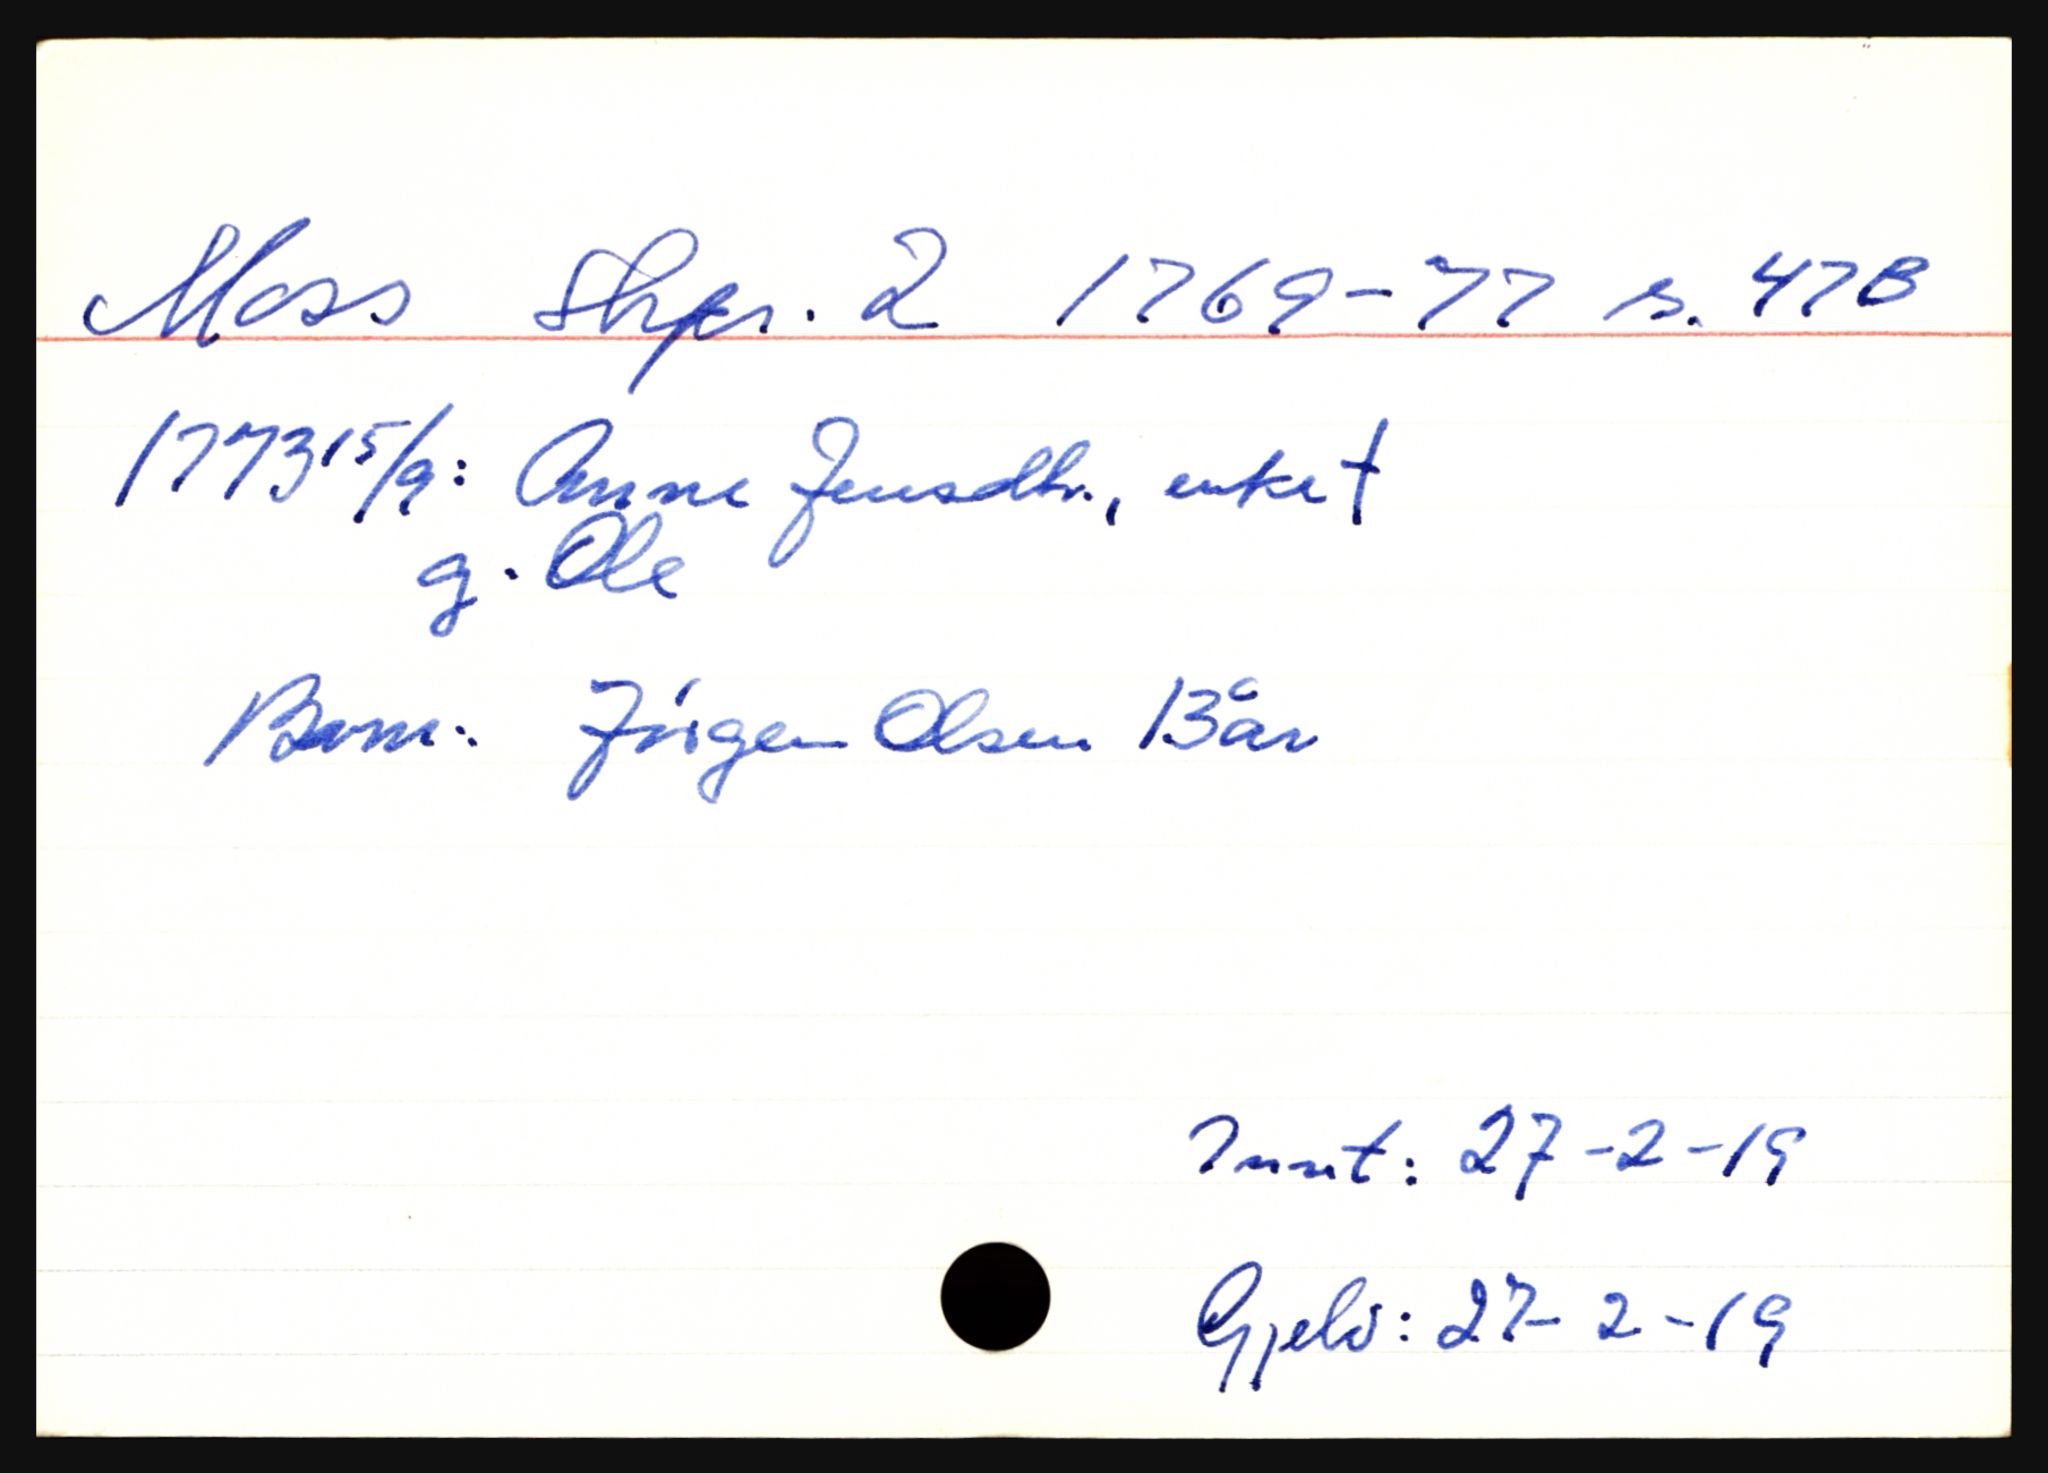 Moss Skpr. 2 1769-77 s. 47B
1773 15/9: Anne Jensdtr., enke †
g. Ole
Barn: Jörgen Olsen Bår
Innt: 27-2-19
Gjeld: 27-2-19